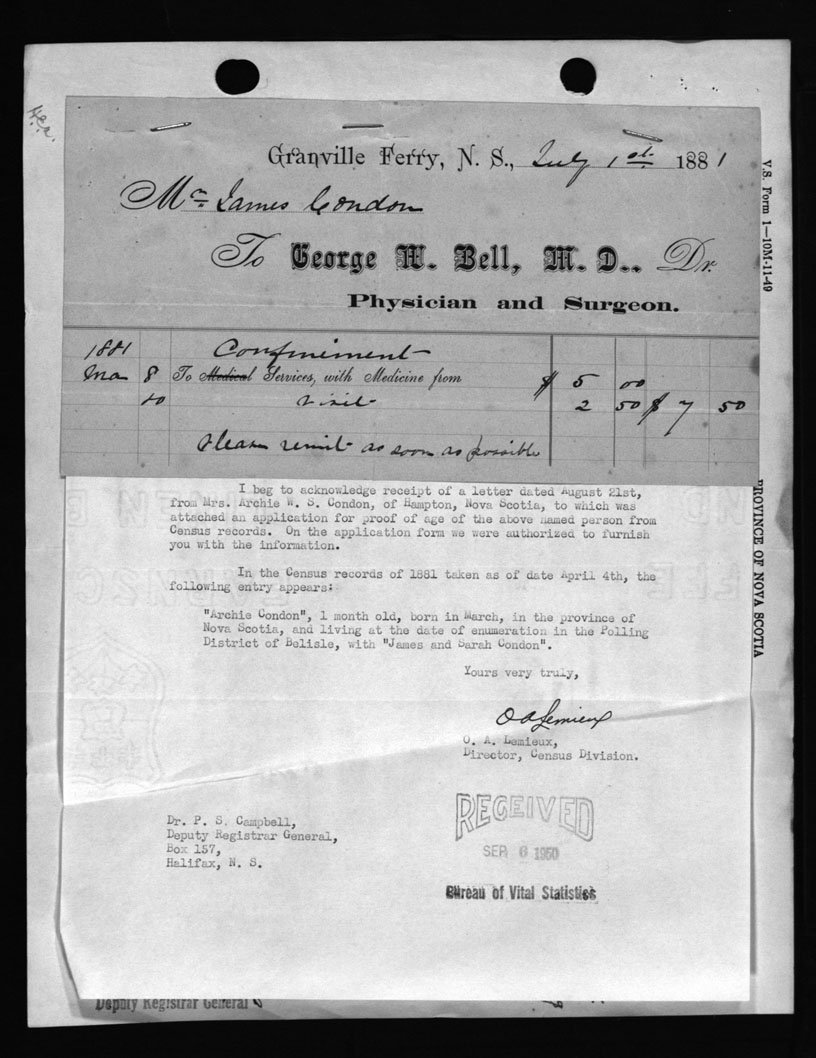 Granville Ferry, N. S., July 1st 1881
Mr James Condon
To George W. Bell, M. D., Dr.
Physician and Surgeon.
1881 Confinement
Mar 8 To Medical Services, with Medicine from $ 5 00
visit 2 50 $ 7 50
Please remit as soon as possible
V.S. Form 1—10M-11-49
PROVINCE OF NOVA SCOTIA
I beg to acknowledge receipt of a letter dated August 21st,
from Mrs. Archie W. S. Condon, of Hampton, Nova Scotia, to which was
attached an application for proof of age of the above named person from
Census records. On the application form we were authorized to furnish
you with the information.
In the Census records of 1881 taken as of date April 4th, the
following entry appears:
"Archie Condon", 1 month old, born in March, in the province of
Nova Scotia, and living at the date of enumeration in the Polling
District of Belisle, with "James and Sarah Condon".
Yours very truly,
O A Lemieux
O. A. Lemieux,
Director, Census Division.
Dr. P. S. Campbell,
Deputy Registrar General,
Box 157,
Halifax, N. S.
RECEIVED
SEP 6 1950
Bureau of Vital Statistics
Deputy Registrar General